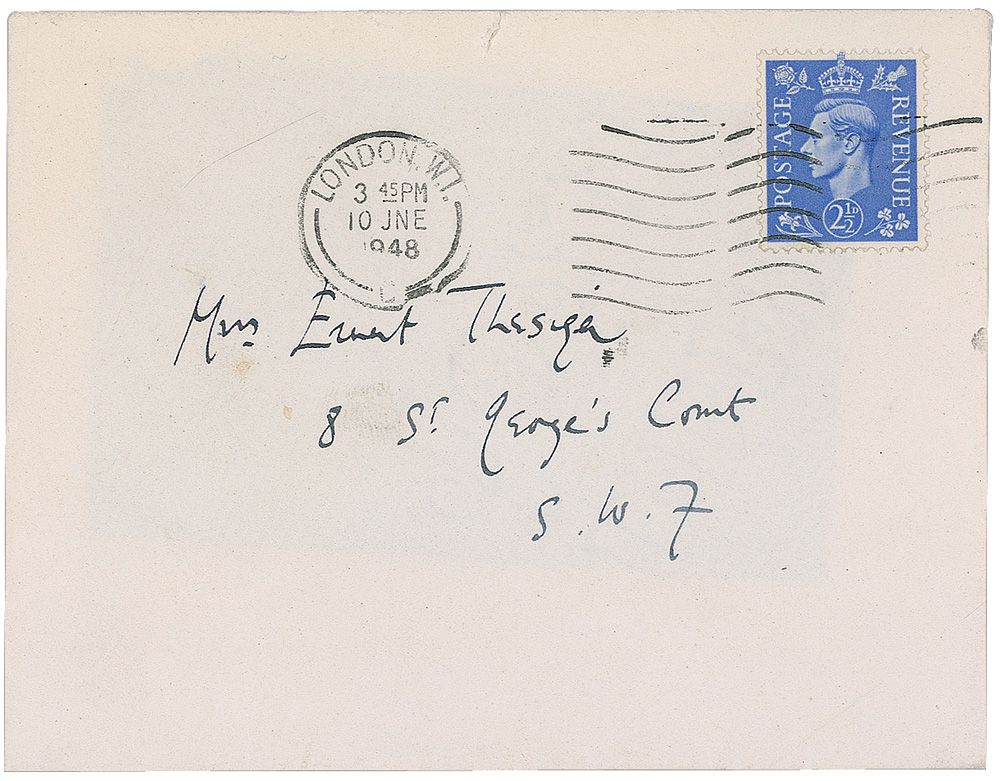 POSTAGE REVENUE
2½D
LONDON. W.1.
3 45PM
10 JNE
1948
Mrs Ernest Thesiger
8 St George's Court
S.W.7